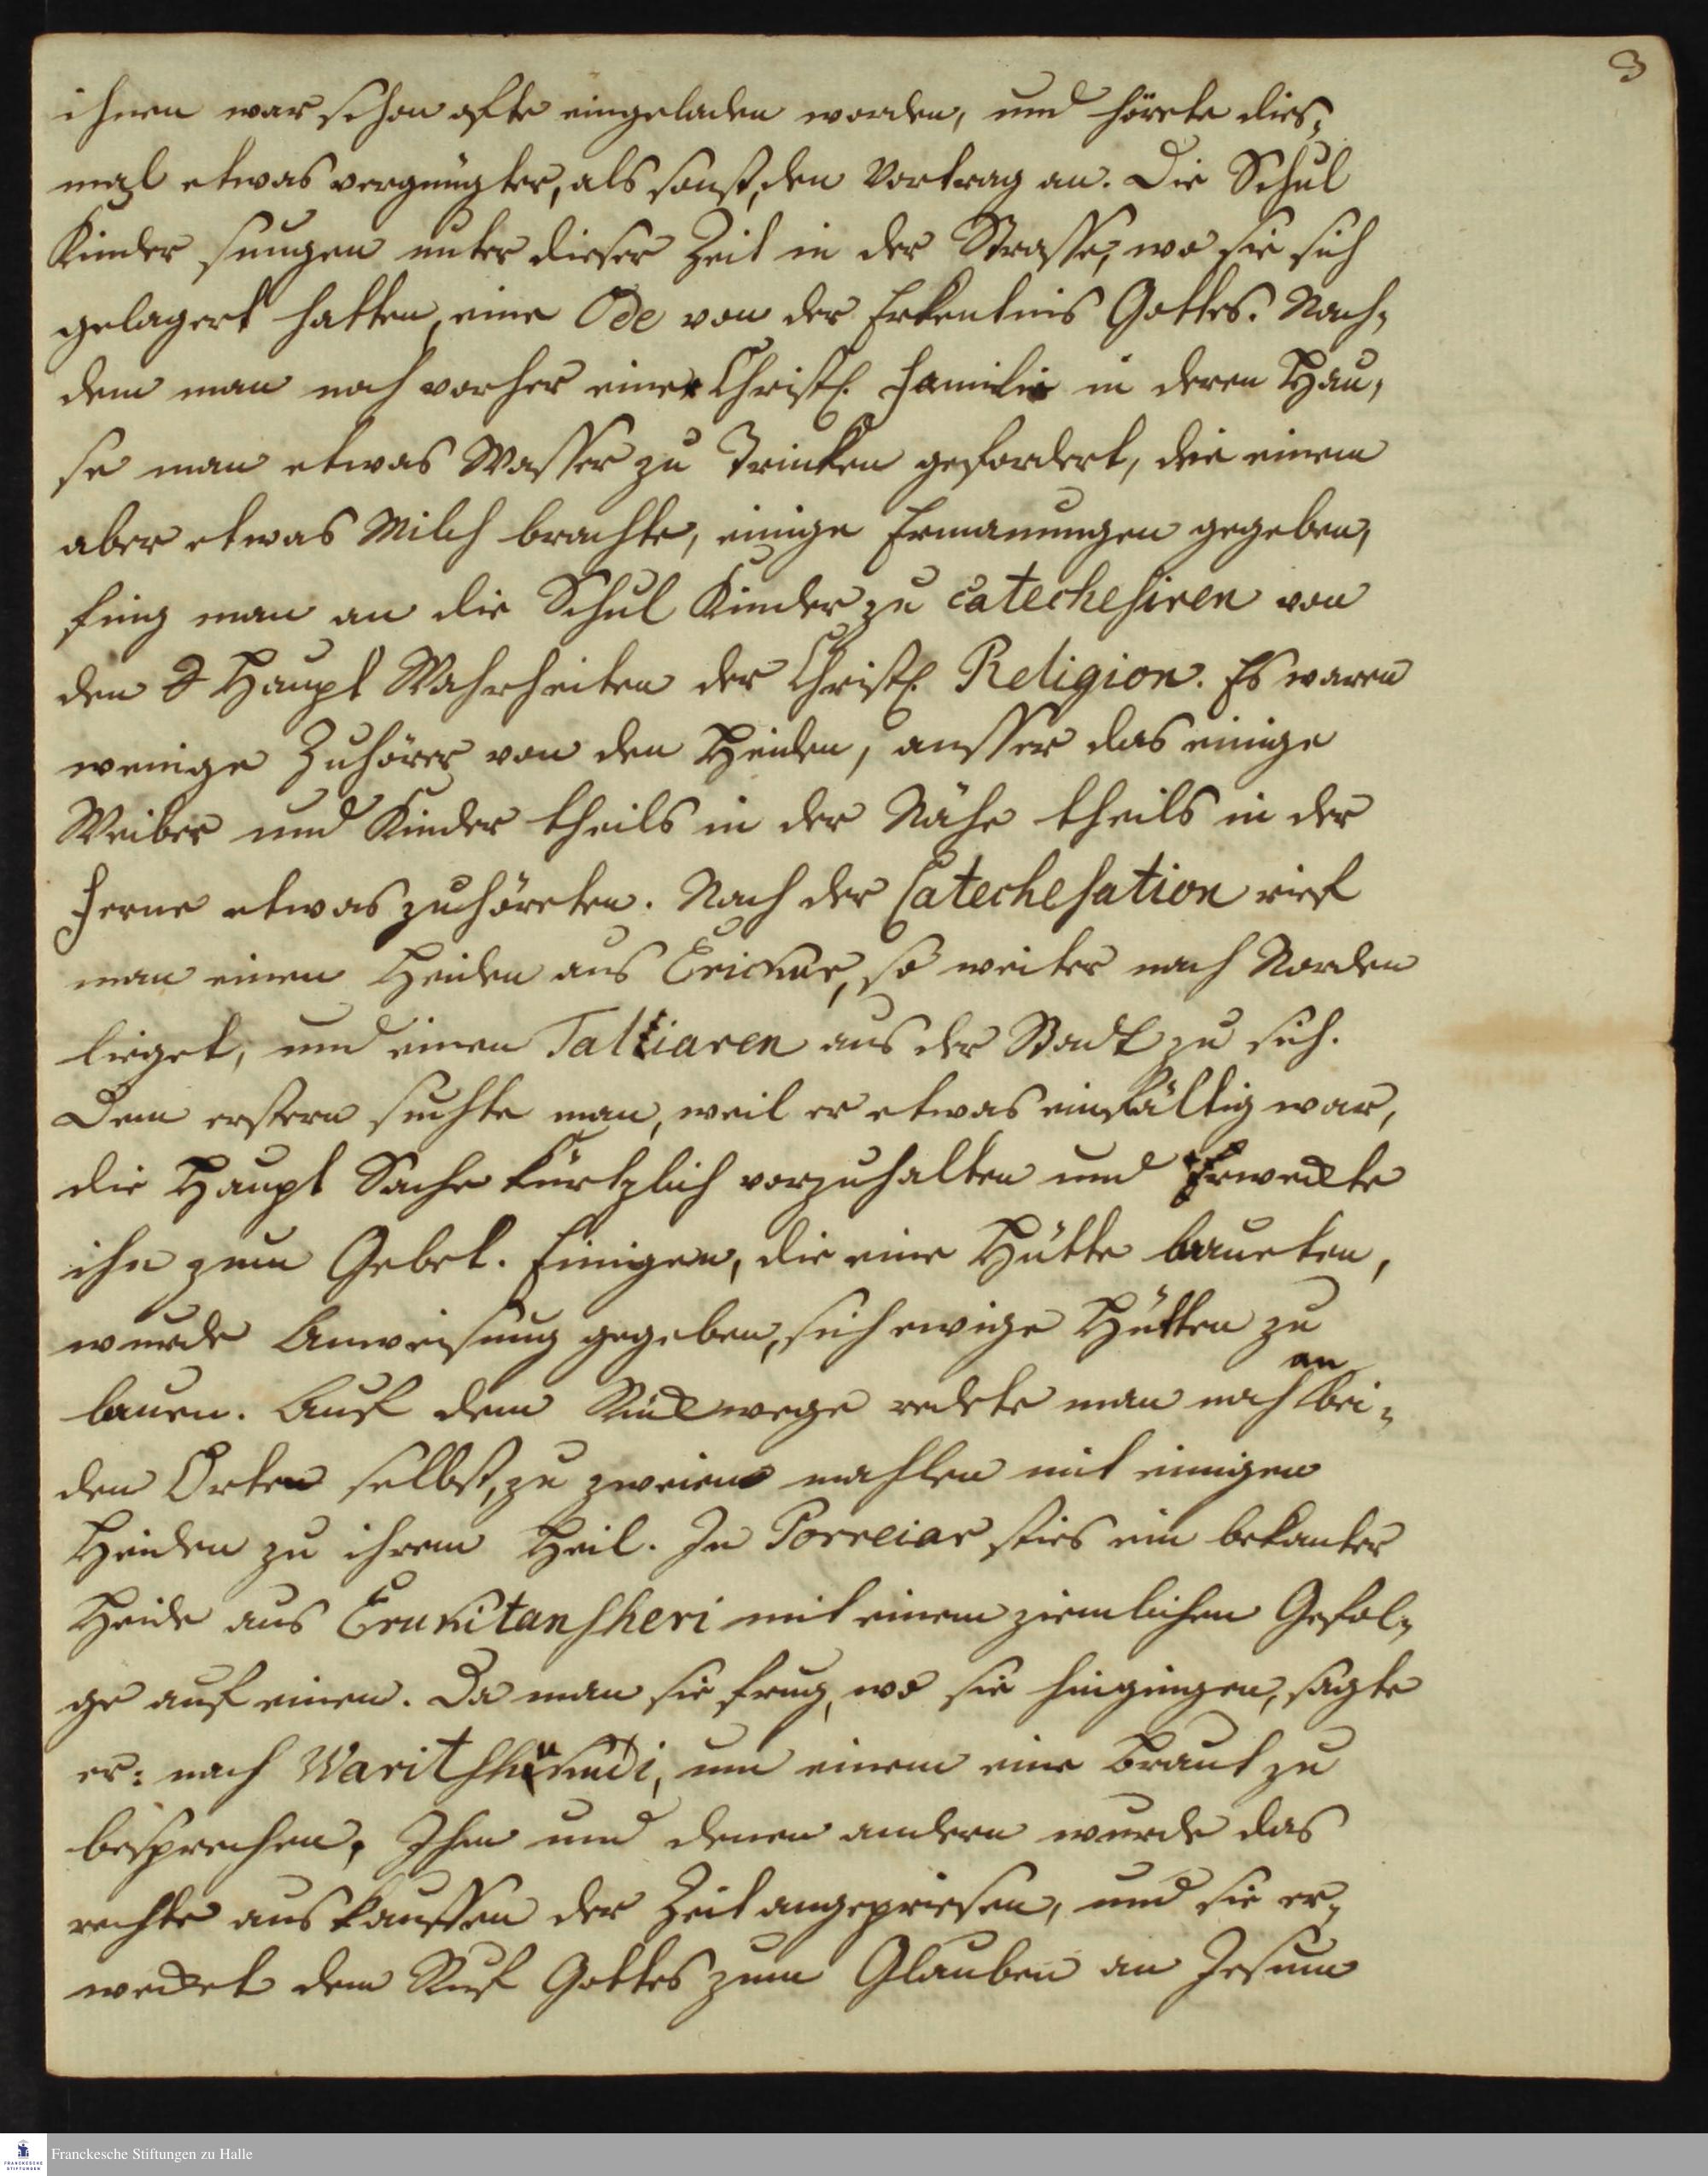 3
ihnen war schon ofte eingeladen worden, und hörete dies-
mal etwas vergnügter, als sonst, den Vortrag an. Die Schul
Kinder sungen unter dieser Zeit in der Strasse, wo sie sich
gelagert hatten, eine Ode von der Erkentnis Gottes. Nach-
dem man noch vorher einer Christl. Familie in deren Hau-
se man etwas Wasser zu Trinken gefordert, die einem
aber etwas Milch brachte, einige Ermanungen gegeben,
fing man an die Schul Kinder zu catechesiren von
den Haupt Wahrheiten der Christl. Religion. Es waren
wenige Zuhörer von den Heiden, ausser das einige
Weiber und Kinder theils in der Nähe theils in der
Ferne etwas zuhöreten. Nach der Catechesation rief
man einen Heiden aus Ericnur, so weiter nach Norden
lieget, und einen Talliaren aus der Stadt zu sich.
Dem erstern suchte man, weil er etwas einfältig war,
die Haupt Sache kürtzlich vorzuhalten und Erweckte
ihn zum Gebet. Einigen, die eine Hütte baueten,
wurde Anweisung gegeben, sich ewige Hütten zu
bauen. Auf dem Rückwege redete man noch an bei-
den Orten selbst, zu zweien mahlen mit einigen
Heiden zu ihrem Heil. In Porreiar sties ein bekanter
Heide aus Erukitansheri mit einem ziemlichen Gefol-
ge auf einen. Da man sie frug, wo sie hingingen, sagte
er: nach Waritshukudi, um einem eine Braut zu
besprechen. Ihm und denen andern wurde das
rechte auskauffen der Zeit angepriesen, und sie er-
wecket dem Ruf Gottes zum Glauben an Jesum
Franckesche Stiftungen zu Halle